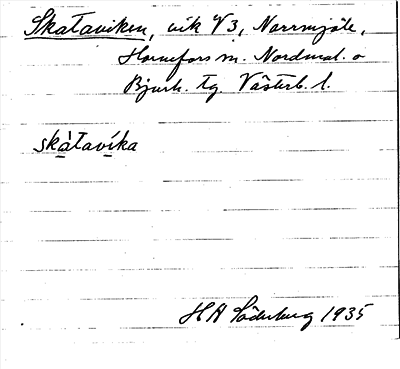 Skataviken, vik V3, Norrmjöle,
Hörnefors sn. Nordmal. o
Bjurh. tg. Västerb. l.
skàtavíka
H A Söderburg 1935